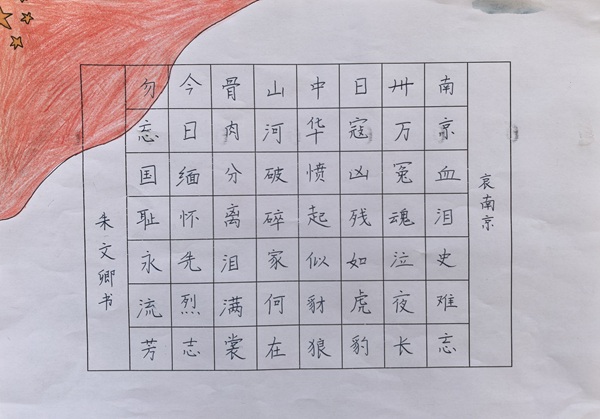 哀南京
南京血泪史难忘
卅万冤魂泣夜长
日寇凶残如虎豹
中华愤起似豺狼
山河破碎家何在
骨肉分离泪满裳
今日缅怀先烈志
勿忘国耻永流芳
朱文卿书